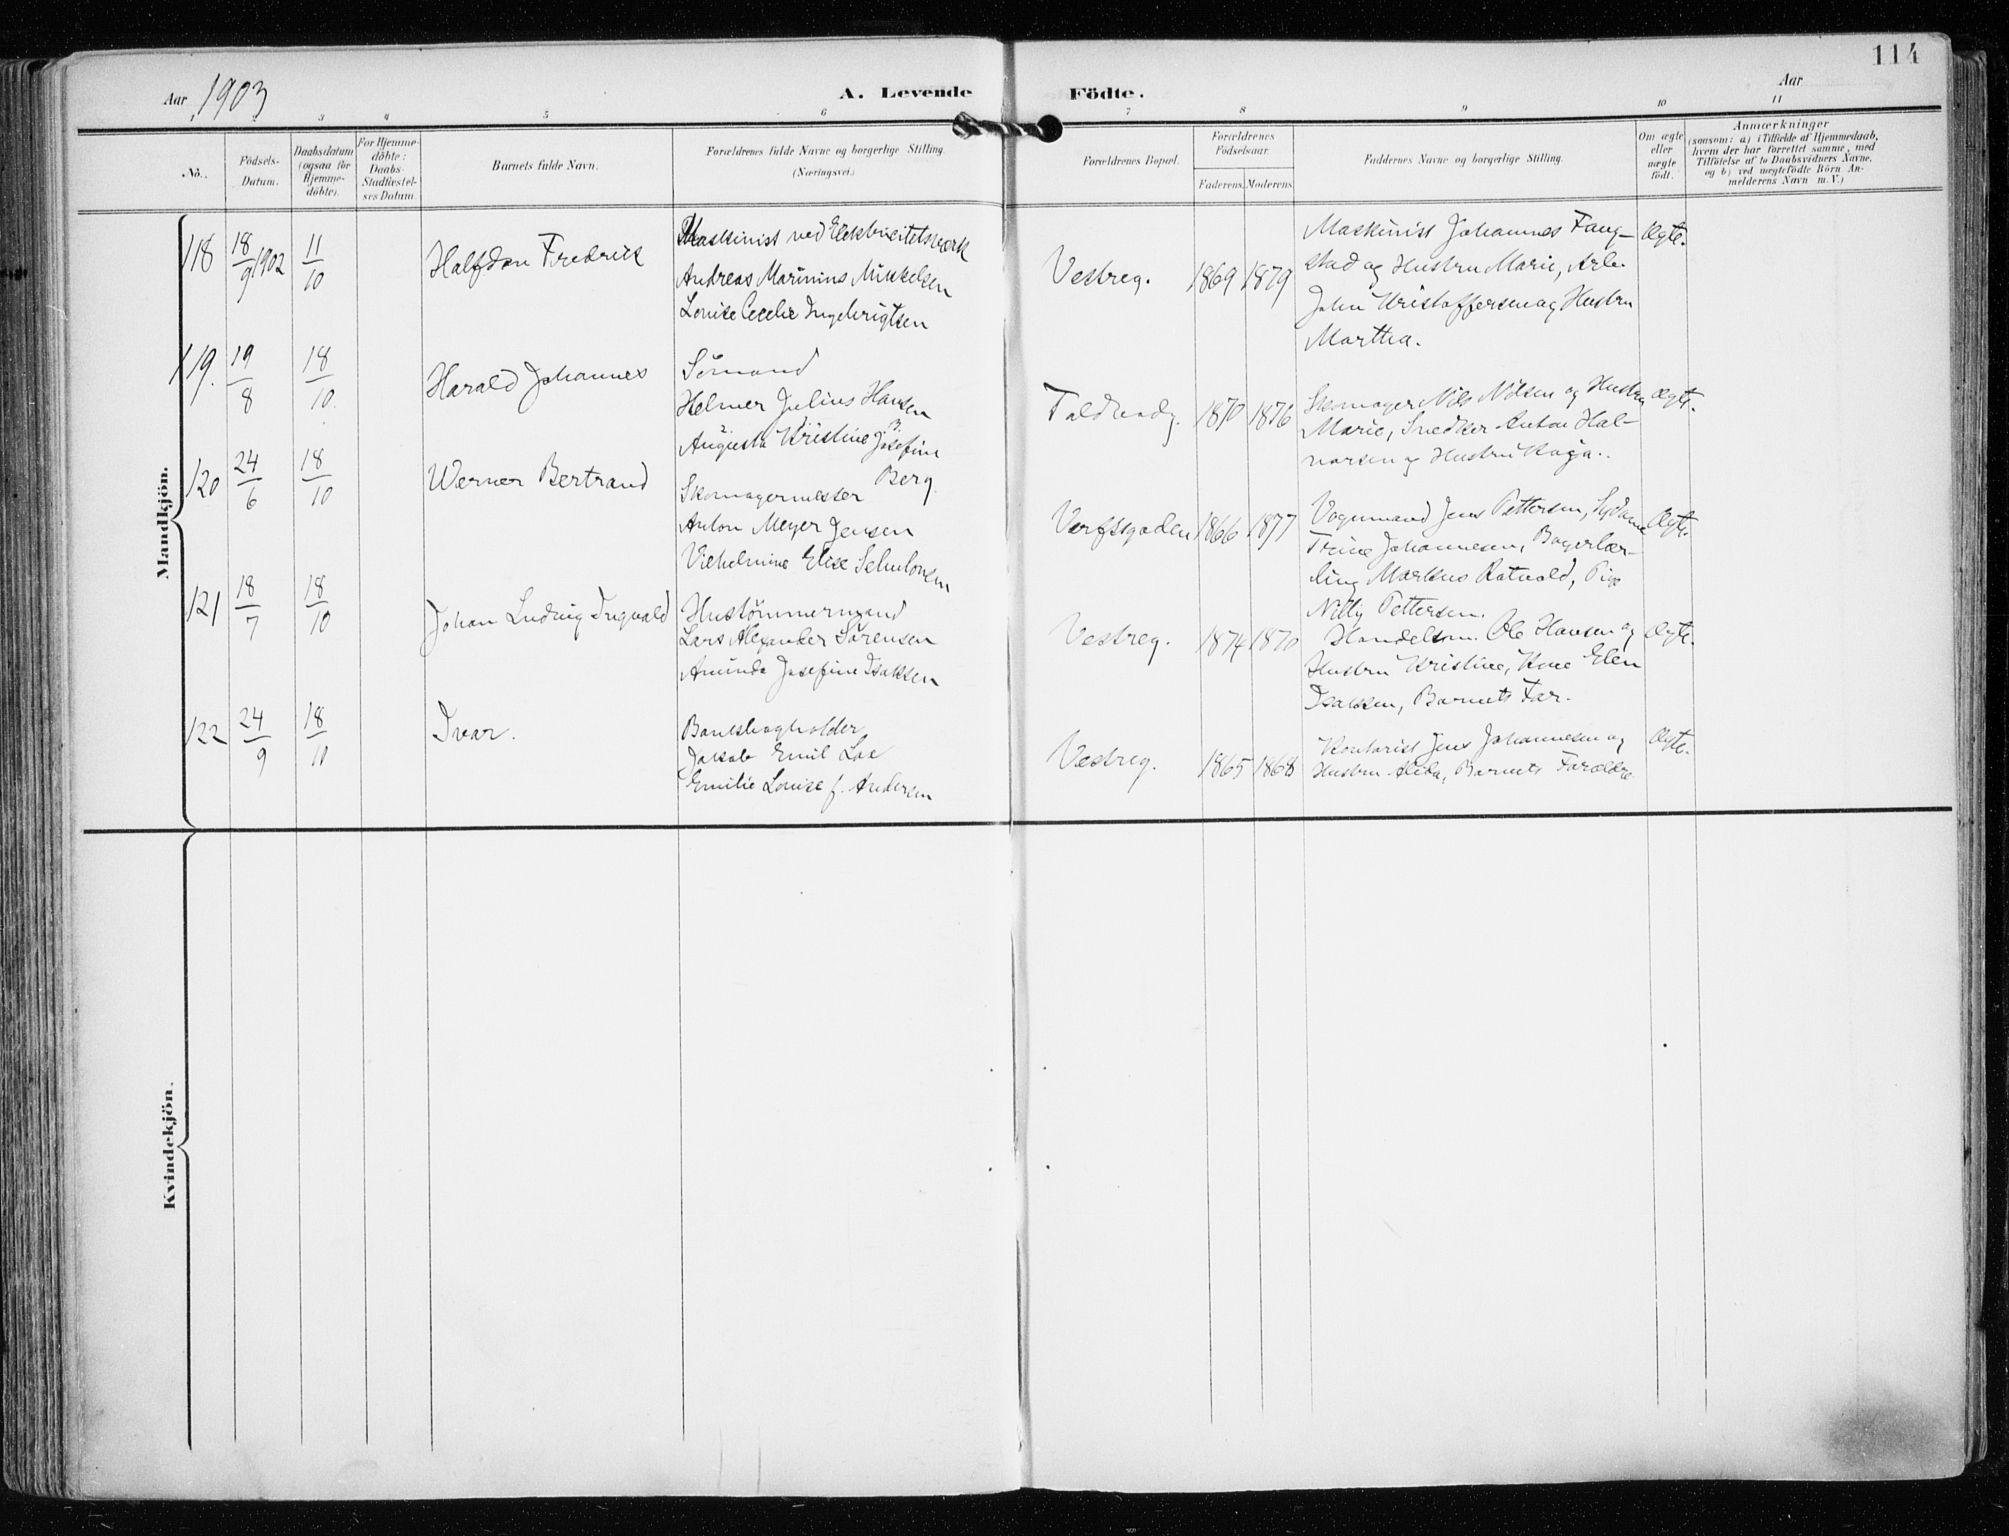 114
Aar 1903
A. Levende Födte.
Aar
1 2 3 4 5 6 7 8 9 10 11
No.
Födsels-
Datum.
Daabsdatum
(ogsaa för
Hjemme-
döbte).
For Hjemme-
döbte:
Daabs-
Stadfæstel-
ses Datum.
Barnets fulde Navn.
Forældrenes fulde Navne og borgerlige Stilling.
(Næringsvei.)
Forældrenes Bopæl.
Forældrenes
Födselsaar.
Faderens. Moderens.
Faddernes Navne og borgerlige Stilling.
Om ægte
eller
uægte
födt.
Anmærkninger
(saasom: a) i Tilfælde af Hjemmedaab,
hvem der har forrettet samme, med
Tilföielse af to Daabsvidners Navne,
og b) ved uægtefödte Börn An-
melderens Navn m. V.)
Mandkjön.
118 18/9 1902 11/10 Halfdan Fredrik
Maskinist ved Elektricitetsværk
Andreas Marinius Mikkelsen
Louise Cecelie Ingebrigtsen
Vestreg. 1869 1879
Maskinist Johannes Faug-
stad og Hustru Marie, Arb.
John Kristoffersen og Hustru
Martha.
Ægte.
119. 19/8 18/10. Harald Johannes
Sömand
Helmer Julius Hansen
Augusta Kristine B. Josefine
Berg.
1870 1876
Skomager Nils Nilsen og Hustru
Marie, Snedker Anton Hal-
varsen og Hustru Kaja.
Ægte.
120 24/6 18/10 Werner Bertrand
Skomagermester
Anton Meyer Jensen
Vilhelmine Elise
Verftsgaden 1866 1877
Vognmand Jens Pettersen, Sydame
Trine Johannesen, Bagerlær-
ling Markus Pige
Nilly Pettersen.
Ægte.
121 18/7 18/10 Johan Ludvig Ingvald
Hustömmermand
Lars Alexander Sörensen
Aminda Josefine Isaksen
Vestreg. 1874 1870
Handelsm. Ole Hansen og
Hustru Kristine, Kone Elen
Isaksen, Barnets Far.
Ægte.
122 24/9 18/10 Ivar.
Bankbogholder
Jakob Emil Lae
Emilie Louise f. Andersen
Vestreg. 1865 1868
Kontorist Jens Johannesen og
Hustru Alida, Barnets Forældre
Ægte.
Kvindekjön.